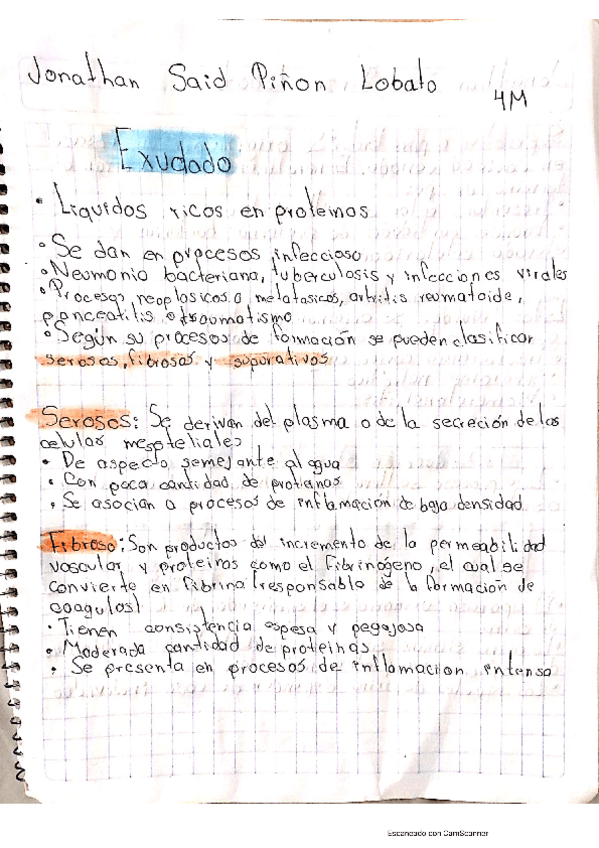 Jonathan Said Piñon Lobato
4M
Exudado
• Liquidos ricos en proteinas
• Se dan en procesos infeccioso
• Neumonia bacteriana, tuberculosis y infecciones virales
• Procesos neoplosicos o metatasicos, artritis reumatoide,
panceatitis o traumatismo
• Según su procesos de formación se pueden clasificar
serosos, fibrosos y supurativos
Serosos: Se derivan del plasma o de la secreción de las
celulas mesoteliales
• De aspecto semejante al agua
• Con poca cantidad de protianas
• Se asocian a procesos de inflamación de baja densidad
Fibroso: Son productos del incremento de la permeabilidad
vascular y proteinas como el fibrinógeno, el cual se
convierte en fibrina (responsable de la formación de
coagulos)
• Tienen consistencia espesa y pegajosa
• Moderada cantidad de proteinas
• Se presenta en procesos de inflamacion intensa
Escaneado con CamScanner